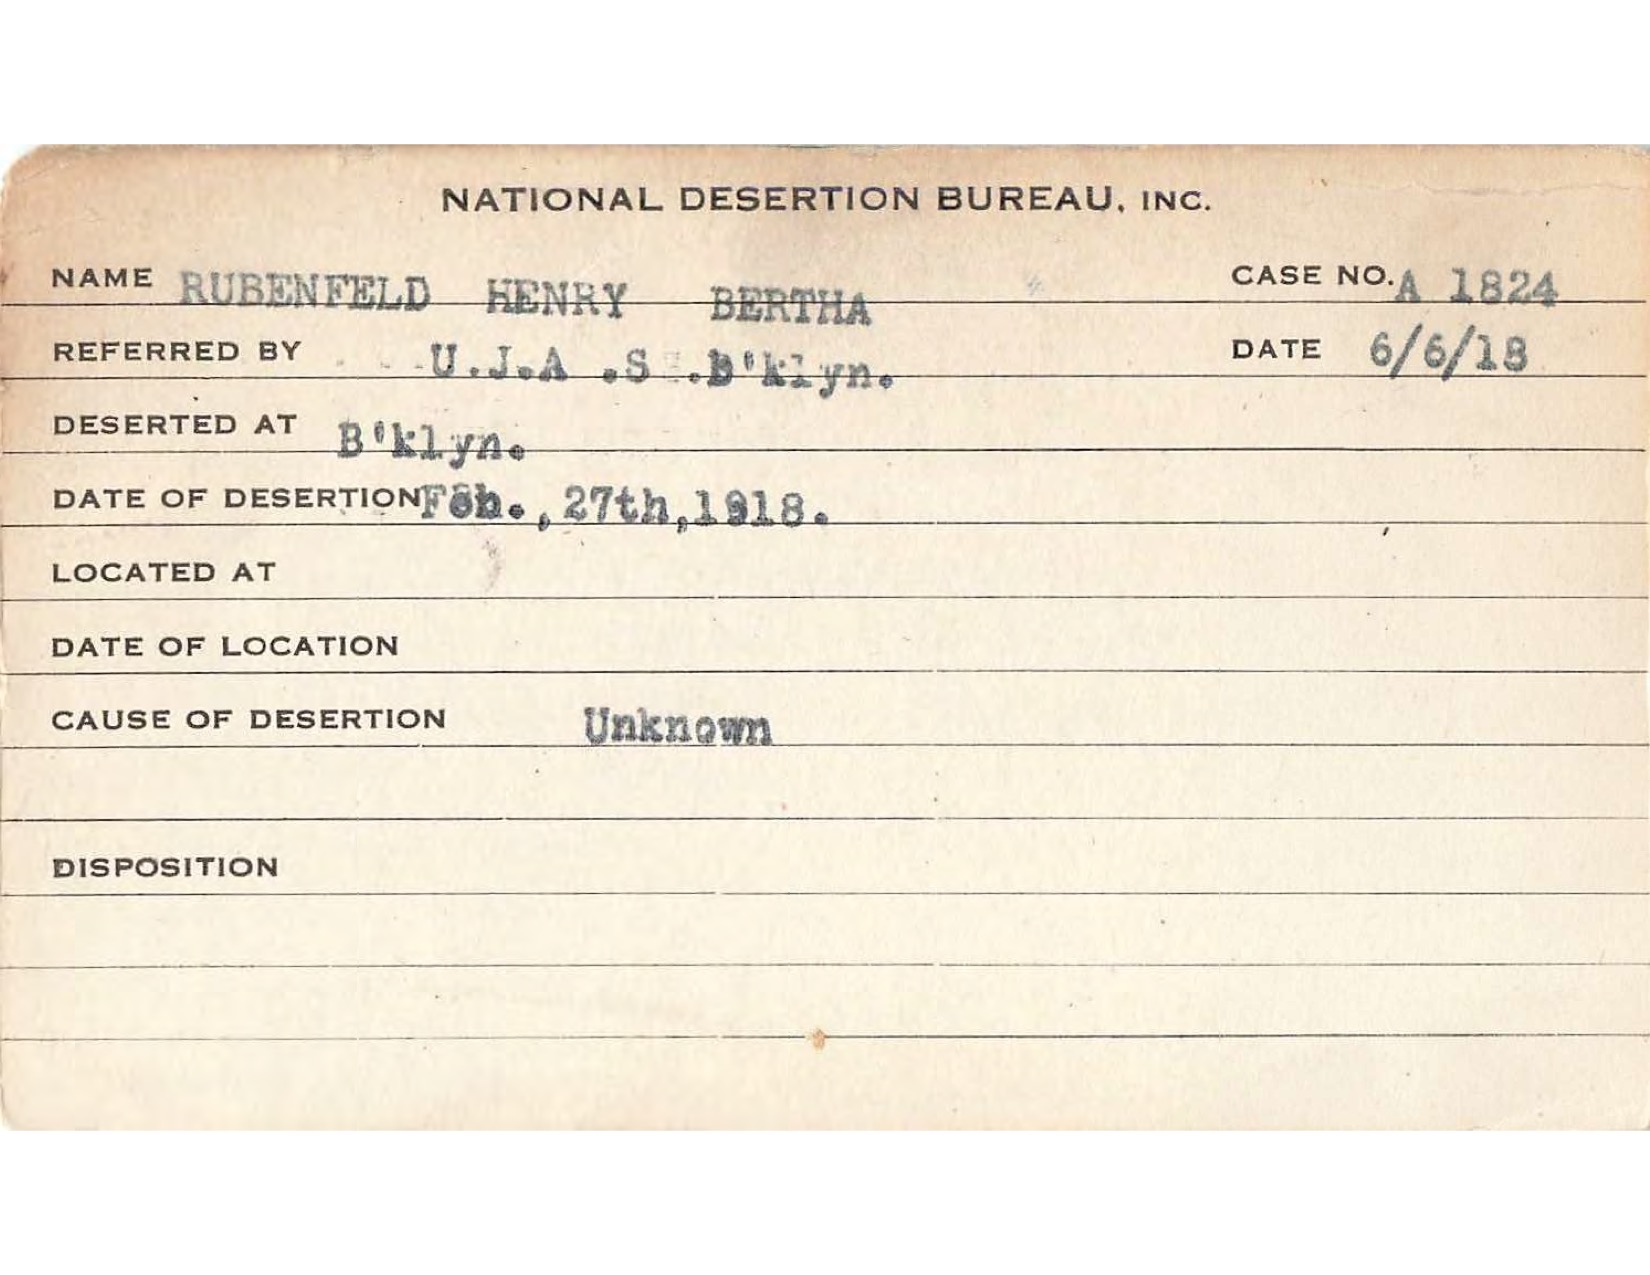 NATIONAL DESERTION BUREAU, INC.
NAME RUBENFELD HENRY BERTHA CASE NO. A 1824
REFERRED BY U.J.A .S .B'klyn. DATE 6/6/18
DESERTED AT B'klyn.
DATE OF DESERTION Feb., 27th, 1918.
LOCATED AT
DATE OF LOCATION
CAUSE OF DESERTION Unknown
DISPOSITION